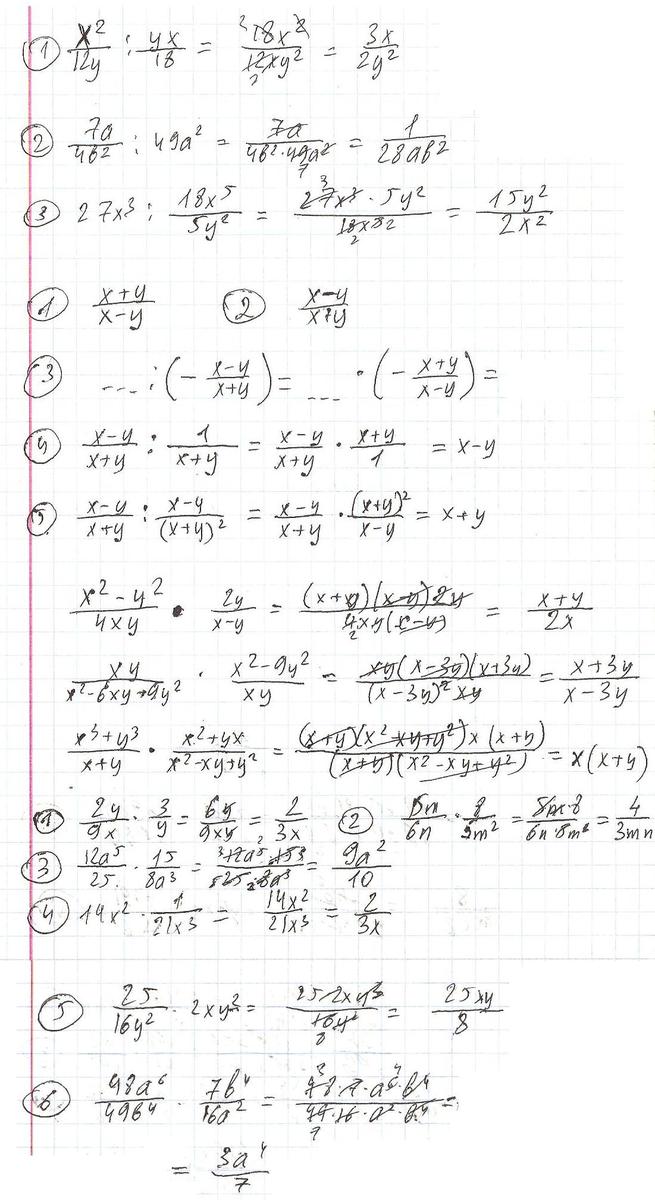 ① x²/12y : yx/18 = 18x²/12xy² = 3x/2y²
② 7a/4b² : 49a² = 7a/4b²·49a² = 1/28ab²
③ 27x³ : 18x⁵/5y² = 27x³·5y²/18x⁵ = 15y²/2x²
① x+y/x-y ② x-y/x+y
③ ... : (- x-y/x+y) = ... · (- x+y/x-y) =
④ x-y/x+y : 1/x+y = x-y/x+y · x+y/1 = x-y
⑤ x-y/x+y : x-y/(x+y)² = x-y/x+y · (x+y)²/x-y = x+y
x²-y²/4xy · 2y/x-y = (x+y)(x-y)2y/4xy(x-y) = x+y/2x
xy/x²-6xy+9y² · x²-9y²/xy = xy(x-3y)(x+3y)/(x-3y)²xy = x+3y/x-3y
x³+y³/x+y · x²+yx/x²-xy+y² = (x+y)(x²-xy+y²)x(x+y)/(x+y)(x²-xy+y²) = x(x+y)
① 2y/9x · 3/y = 6y/9xy = 2/3x ② 5m/6n · 8/5m² = 5m·8/6n·5m² = 4/3mn
③ 12a⁵/25 · 15/8a³ = 12a⁵·15/25·8a³ = 9a²/10
④ 14x² · 1/21x³ = 14x²/21x³ = 2/3x
⑤ 25/16y² · 2xy³ = 25·2xy³/16y² = 25xy/8
⑥ 48a⁶/49b⁴ · 7b⁴/16a² = 48·7·a⁶·b⁴/49·16·a²·b⁴ =
= 3a⁴/7